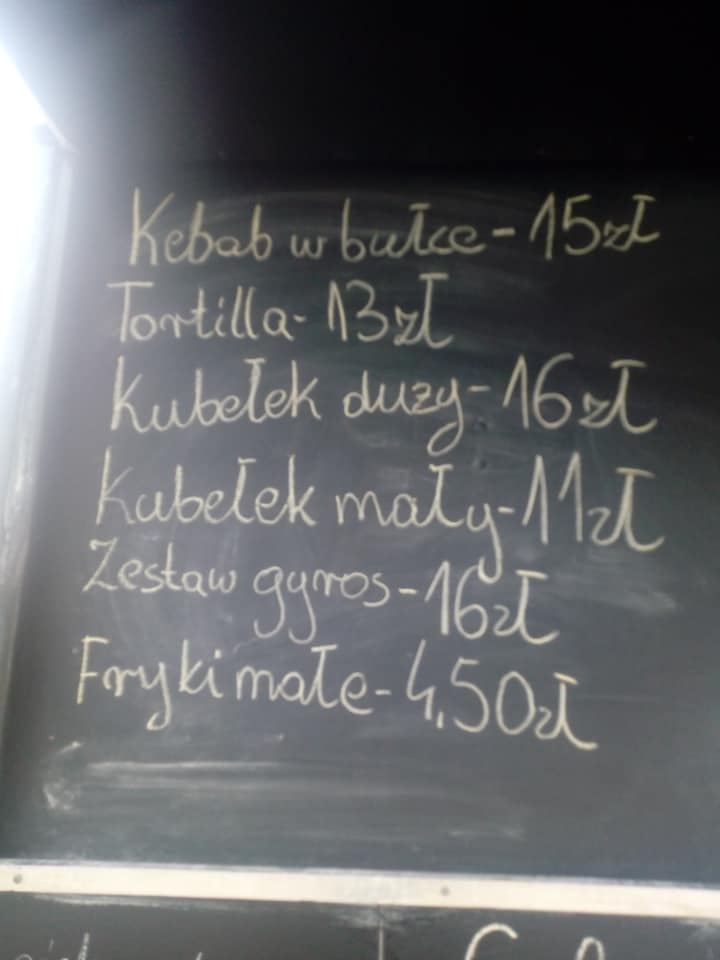 Kebab w bułce - 15zł
Tortilla - 13zł
Kubełek duży - 16zł
Kubełek mały - 11zł
Zestaw gyros - 16zł
Frykimałe - 4,50zł